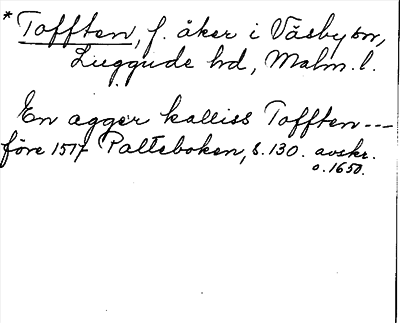 * Tofften, f. åker i Väsby sn,
Luggude hd, Malm. l.
En agger kalliss Tofften---
före 1517 Palteboken, s. 130. avskr.
o. 1650.